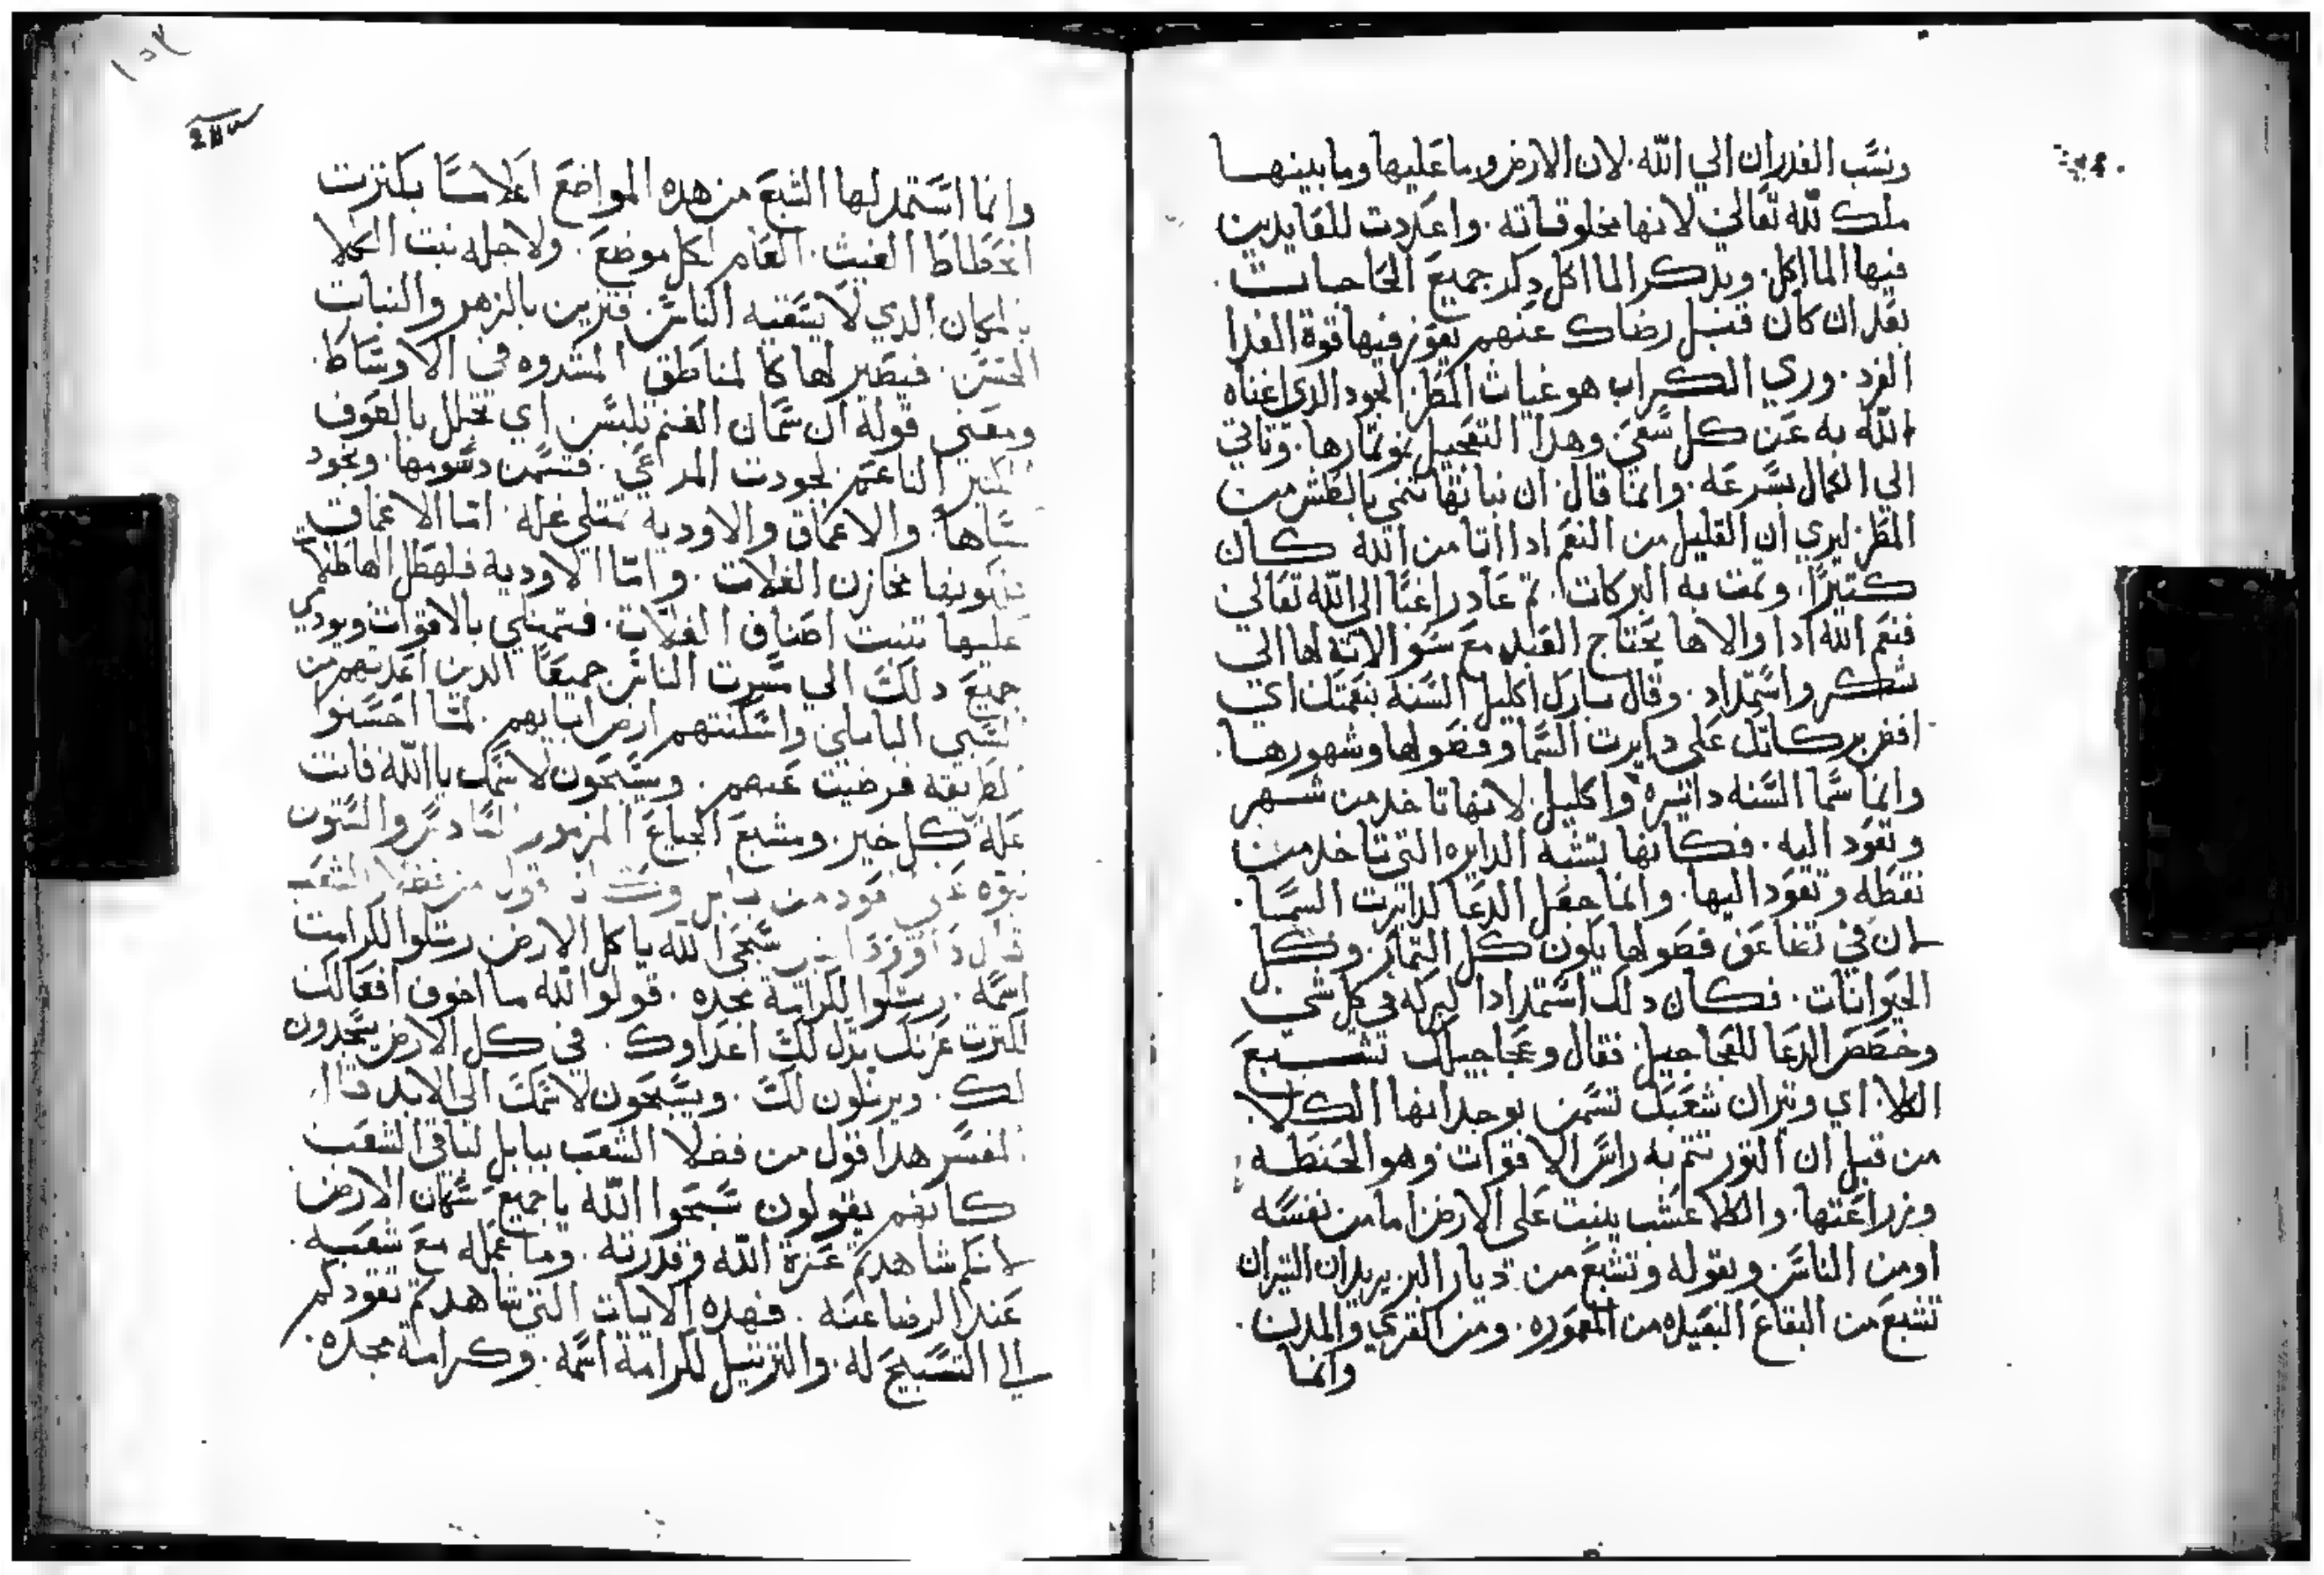 ونسب الغدران الي الله. لان الارض وما عليها وما بينهـا
ملك لله تعالي لانها مخلوقاته. واعدت للعايدين
فيها الماكل. وبذكر الماكل ذكر جميع الحاجات
بعد ان كان قبل رضاك عنهم يعوز فيها قوة الغدا
الفرد. وري الكراب هو غياث المطر الجود الدي اغناه
الله به عن كل سقي. وهدا التعجيل نمو ثمارها. وتاتي
الي الكمال بسرعه. وانما قال ان نباتها تنمي بالطش من
المطر ليري ان القليل من النعم ادا اتا من الله كان
كتيرًا. ونمت به البركات. ثم عاد راغبًا الي الله تعالي
فنعم الله ادا والاها يحتاج العبد مع الي
شكر واستمداد. وقال بارك اكليل السنه بنعمتك اي
افض بركاتك علي دايرت السما وفصولها وشهورها.
وانما سما السنه دايره واكليل لانها تاخد من شهر
وتعود اليه. فكانها تشبه الدايره التي تتاخد من
نقطه وتعود اليها. وانما جعل الدعا لدايرت السما.
لان في تضاعف فصولها يكون كل الثمار. وكل
الحيوانات. فكان دلك استمدادا لبركه في كل شي
وخصص الدعا للعجاجيل. فقال وعجاجيلك تشبع
الكلا. اي وتيران شعبك تسمن بوجدانها الكلا
من قبل ان التور تتم به راس الاقوات وهو الحنطه
وزراعتها. والكلا عشب ينبت علي الارض اما من نفسه
اومن الناس. وبقوله وتشبع من ديار البر يريد ان التيران
تشبع من البقاع البعيده من المعموره. ومن القري والمدن.
وانما
وانما استمد لها الشبع من هده المواضع اعلامًا بكترت
انحطاط الغيث. العام لكل موضع. ولاجله نبت الكلا
بالمكان الدي لا يسقيه الناس فتزين بالزهر والنبات
الحسن. فيصير لها كالمناطق المشدوده في الاوساط
ومعني قوله ان سمان الغنم تلبس اي تجلل بالصوف
الكتير الناعم لجودت المراعي. فتسمن دسومها. وتجود
والاعماق والاودية تمتلي غله. اما الاعماق
مخازن الغلات. واما الاودية فلهطل الهاطل
عليها تنبت اصناف الغلات. فتمتلي بالاقوات ويودي
جميع دلك الي مسرت الناس جميعًا الدين اعدتهم من
السبي البابلي واسكنتهم ارض ابايهم. لما احسنوا
الطريقه فرضيت عنهم. ويسبحون لاسمك ياالله فانت
علة كل خير. ومشبع الجياع المزمور الخامس والستون
قاله داوود شبحوا الله ياكل الارض رتلوا لكرامت
اسمه. رتلوا لكرامة مجده. قولوا لله ما اخوف افعالك
لكترت عزتك تدل لك اعداوك. في كل الارض يسجدون
لك. ويرتلون لك. ويسبحون لاسمك الي الابد قال
المفسر هدا قول من فضلا الشعب ببابل لباقي الشعب
كانهم يقولون سبحوا الله ياجميع سكان الارض
لانكم شاهدتم عزة الله وقدرته. وما عمله مع شعبه.
عند الرضا عنه. فهده الايات التي شاهدتم تقودكم
الي التسبيح له. والترتيل لكرامة اسمه. وكرامة مجده.